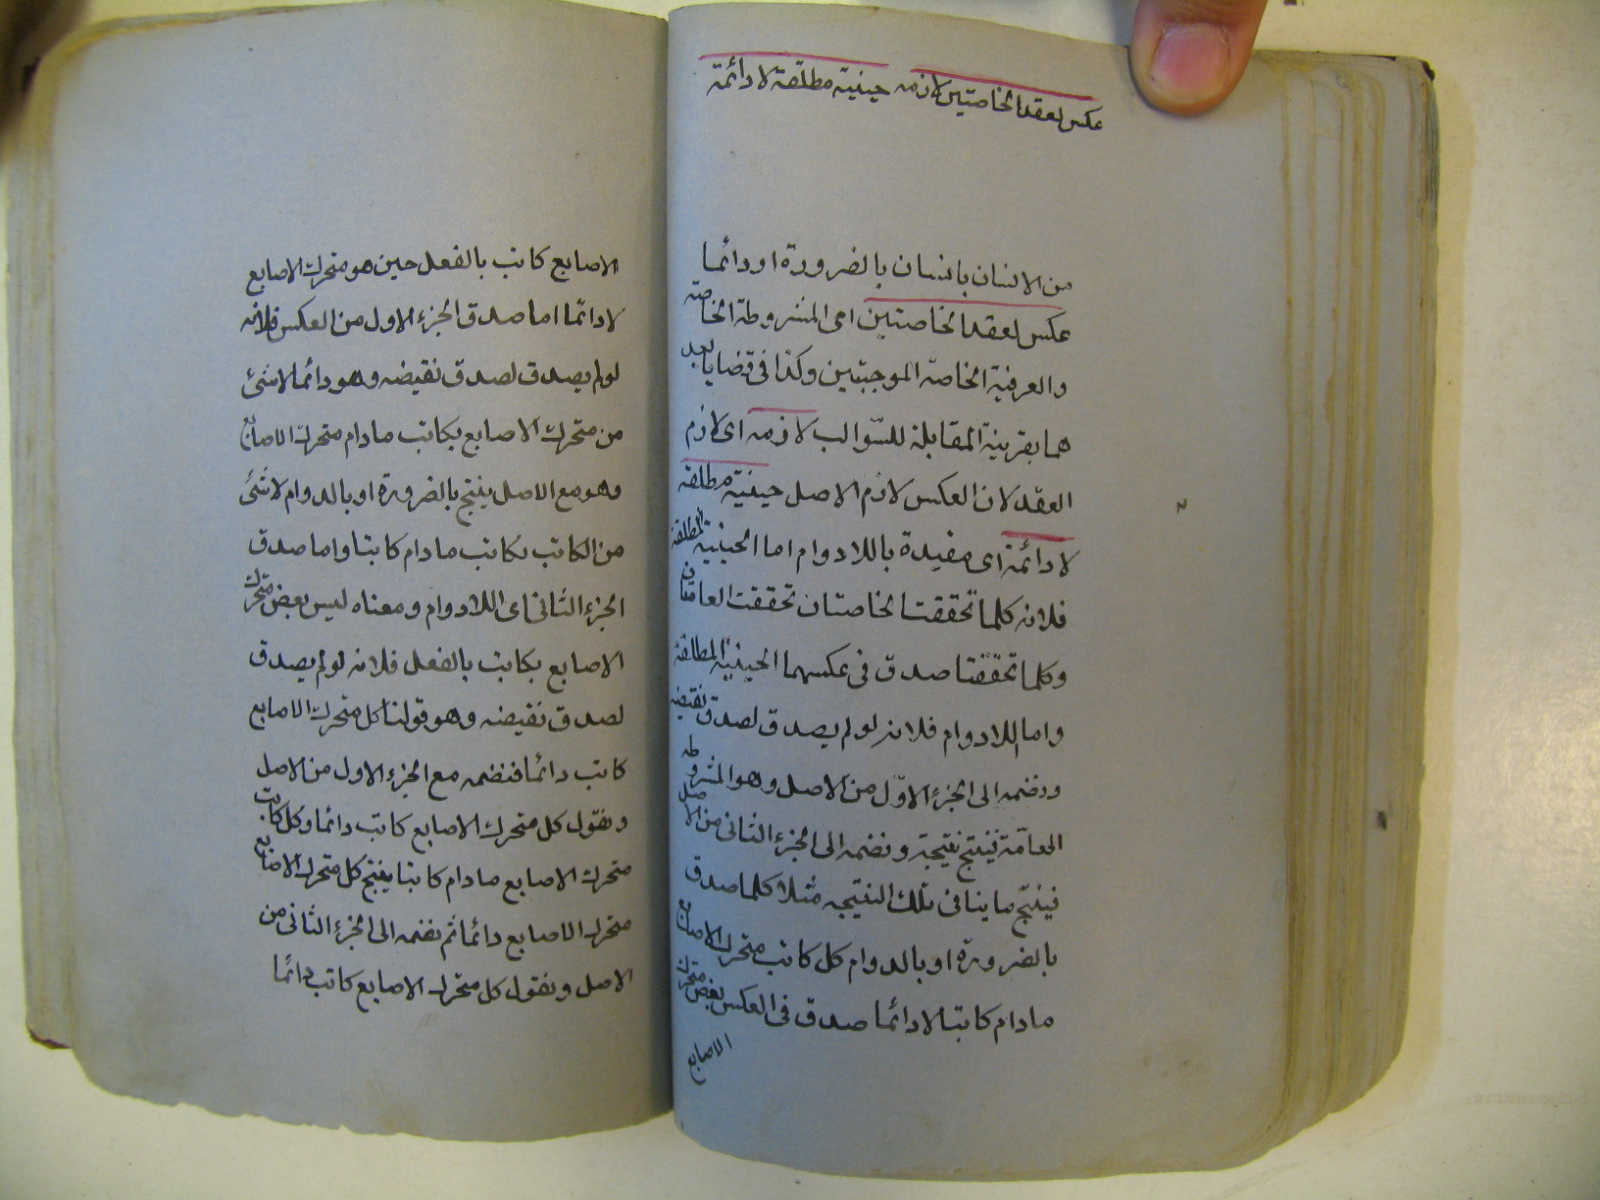 عكس لعقد الخاصتين لازمه حينية مطلقة لا دائمة
من الانسان بانسان بالضرورة او دائما
عكس لعقد الخاصتين اى المشروطة الخاصة
والعرفية الخاصة الموجبتين وكذا فى قضايا بعد
هما بقرينة المقابلة للسوالب لازمه اى لازم
العقد لان العكس لازم الاصل حينية مطلقه
لا دائمة اى مقيدة باللادوام اما الحينية المطلقة
فلانه كلما تحققت الخاصتان تحققت العامتان
وكلما تحققتا صدق فى عكسهما الحينية المطلقة
واما اللادوام فلانه لو لم يصدق لصدق نقيضه
ونضمه الى الجزء الاول من الاصل وهو المشروطه
العامة فينتج نتيجة ونضمه الى الجزء الثانى من الاصل
فينتج ما ينافى تلك النتيجه مثلا كلما صدق
بالضرورة او بالدوام كل كاتب متحرك الاصابع
مادام كاتبا لا دائما صدق فى العكس بعض متحرك
الاصابع
الاصابع كاتب بالفعل حين هو متحرك الاصابع
لا دائما اما صدق الجزء الاول من العكس فلانه
لو لم يصدق لصدق نقيضه وهو دائما لا شئ
من متحرك الاصابع بكاتب مادام متحرك الاصابع
وهو مع الاصل ينتج بالضرورة او بالدوام لا شئ
من الكاتب بكاتب مادام كاتبا واما صدق
الجزء الثانى اى اللادوام ومعناه ليس بعض متحرك
الاصابع بكاتب بالفعل فلانه لو لم يصدق
لصدق نقيضه وهو قولنا كل متحرك الاصابع
كاتب دائما فنضمه مع الجزء الاول من الاصل
ونقول كل متحرك الاصابع كاتب دائما وكل كاتب
متحرك الاصابع مادام كاتبا ينتج كل متحرك الاصابع
متحرك الاصابع دائما ثم نضمه الى الجزء الثانى من
الاصل ونقول كل متحرك الاصابع كاتب دائما